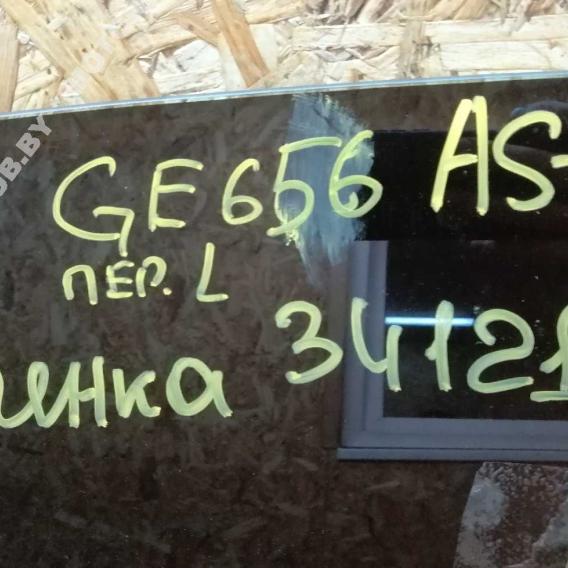 GE656 AS-
ПЕР. L
инка 34121
OB.BY